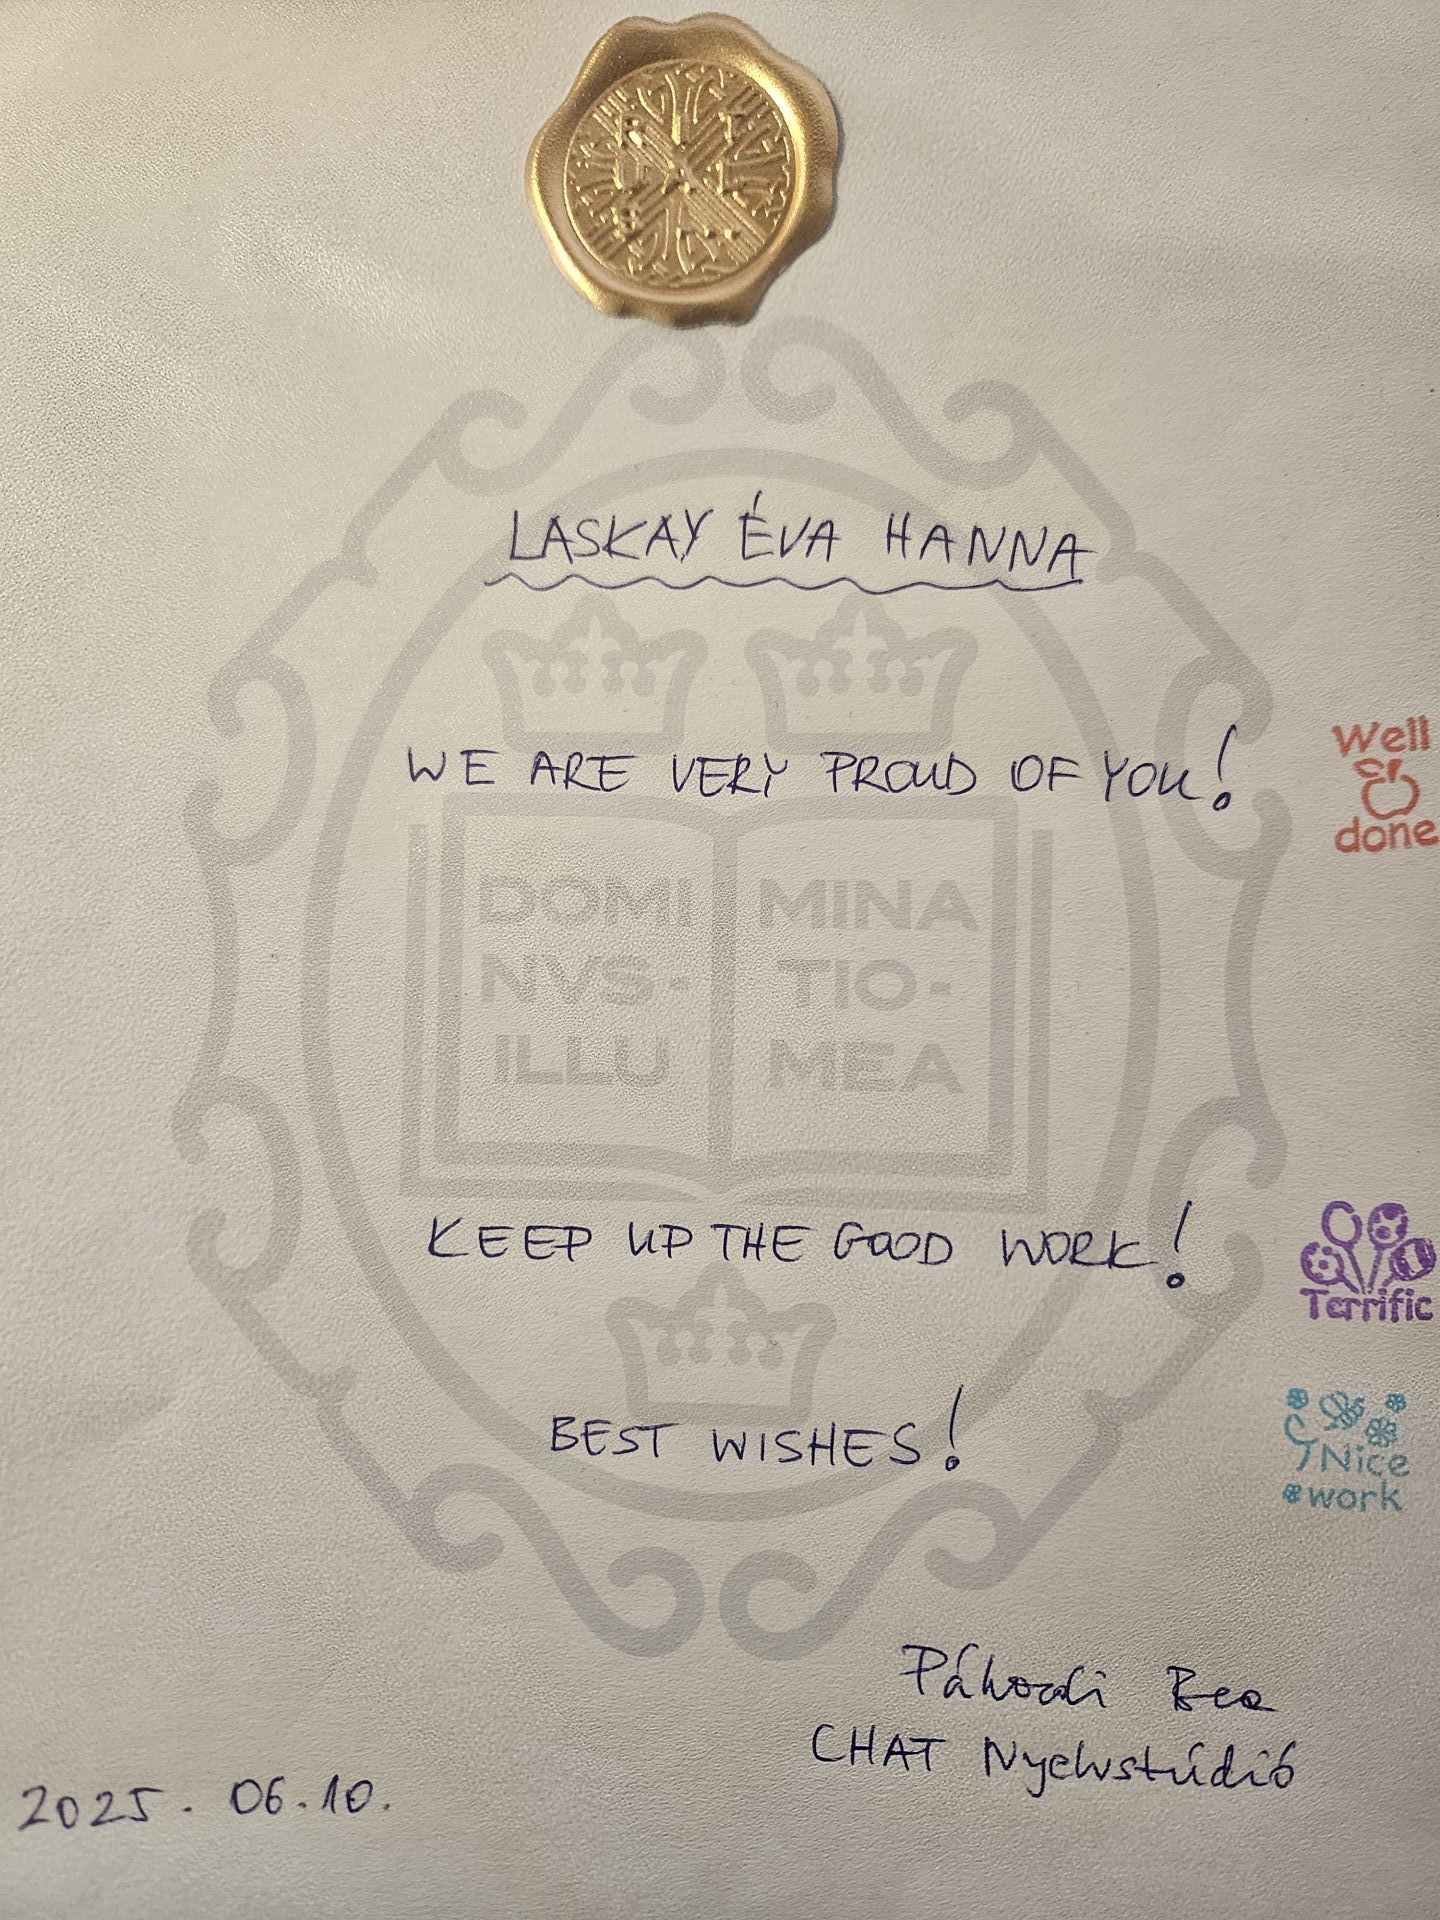 LASKAY ÉVA HANNA
WE ARE VERY PROUD OF YOU!
Well
done
DOMI MINA
NVS- TIO-
ILLU MEA
KEEP UP THE GOOD WORK!
Terrific
BEST WISHES!
Nice
work
Bea
CHAT Nyelvstúdió
2025. 06.10.